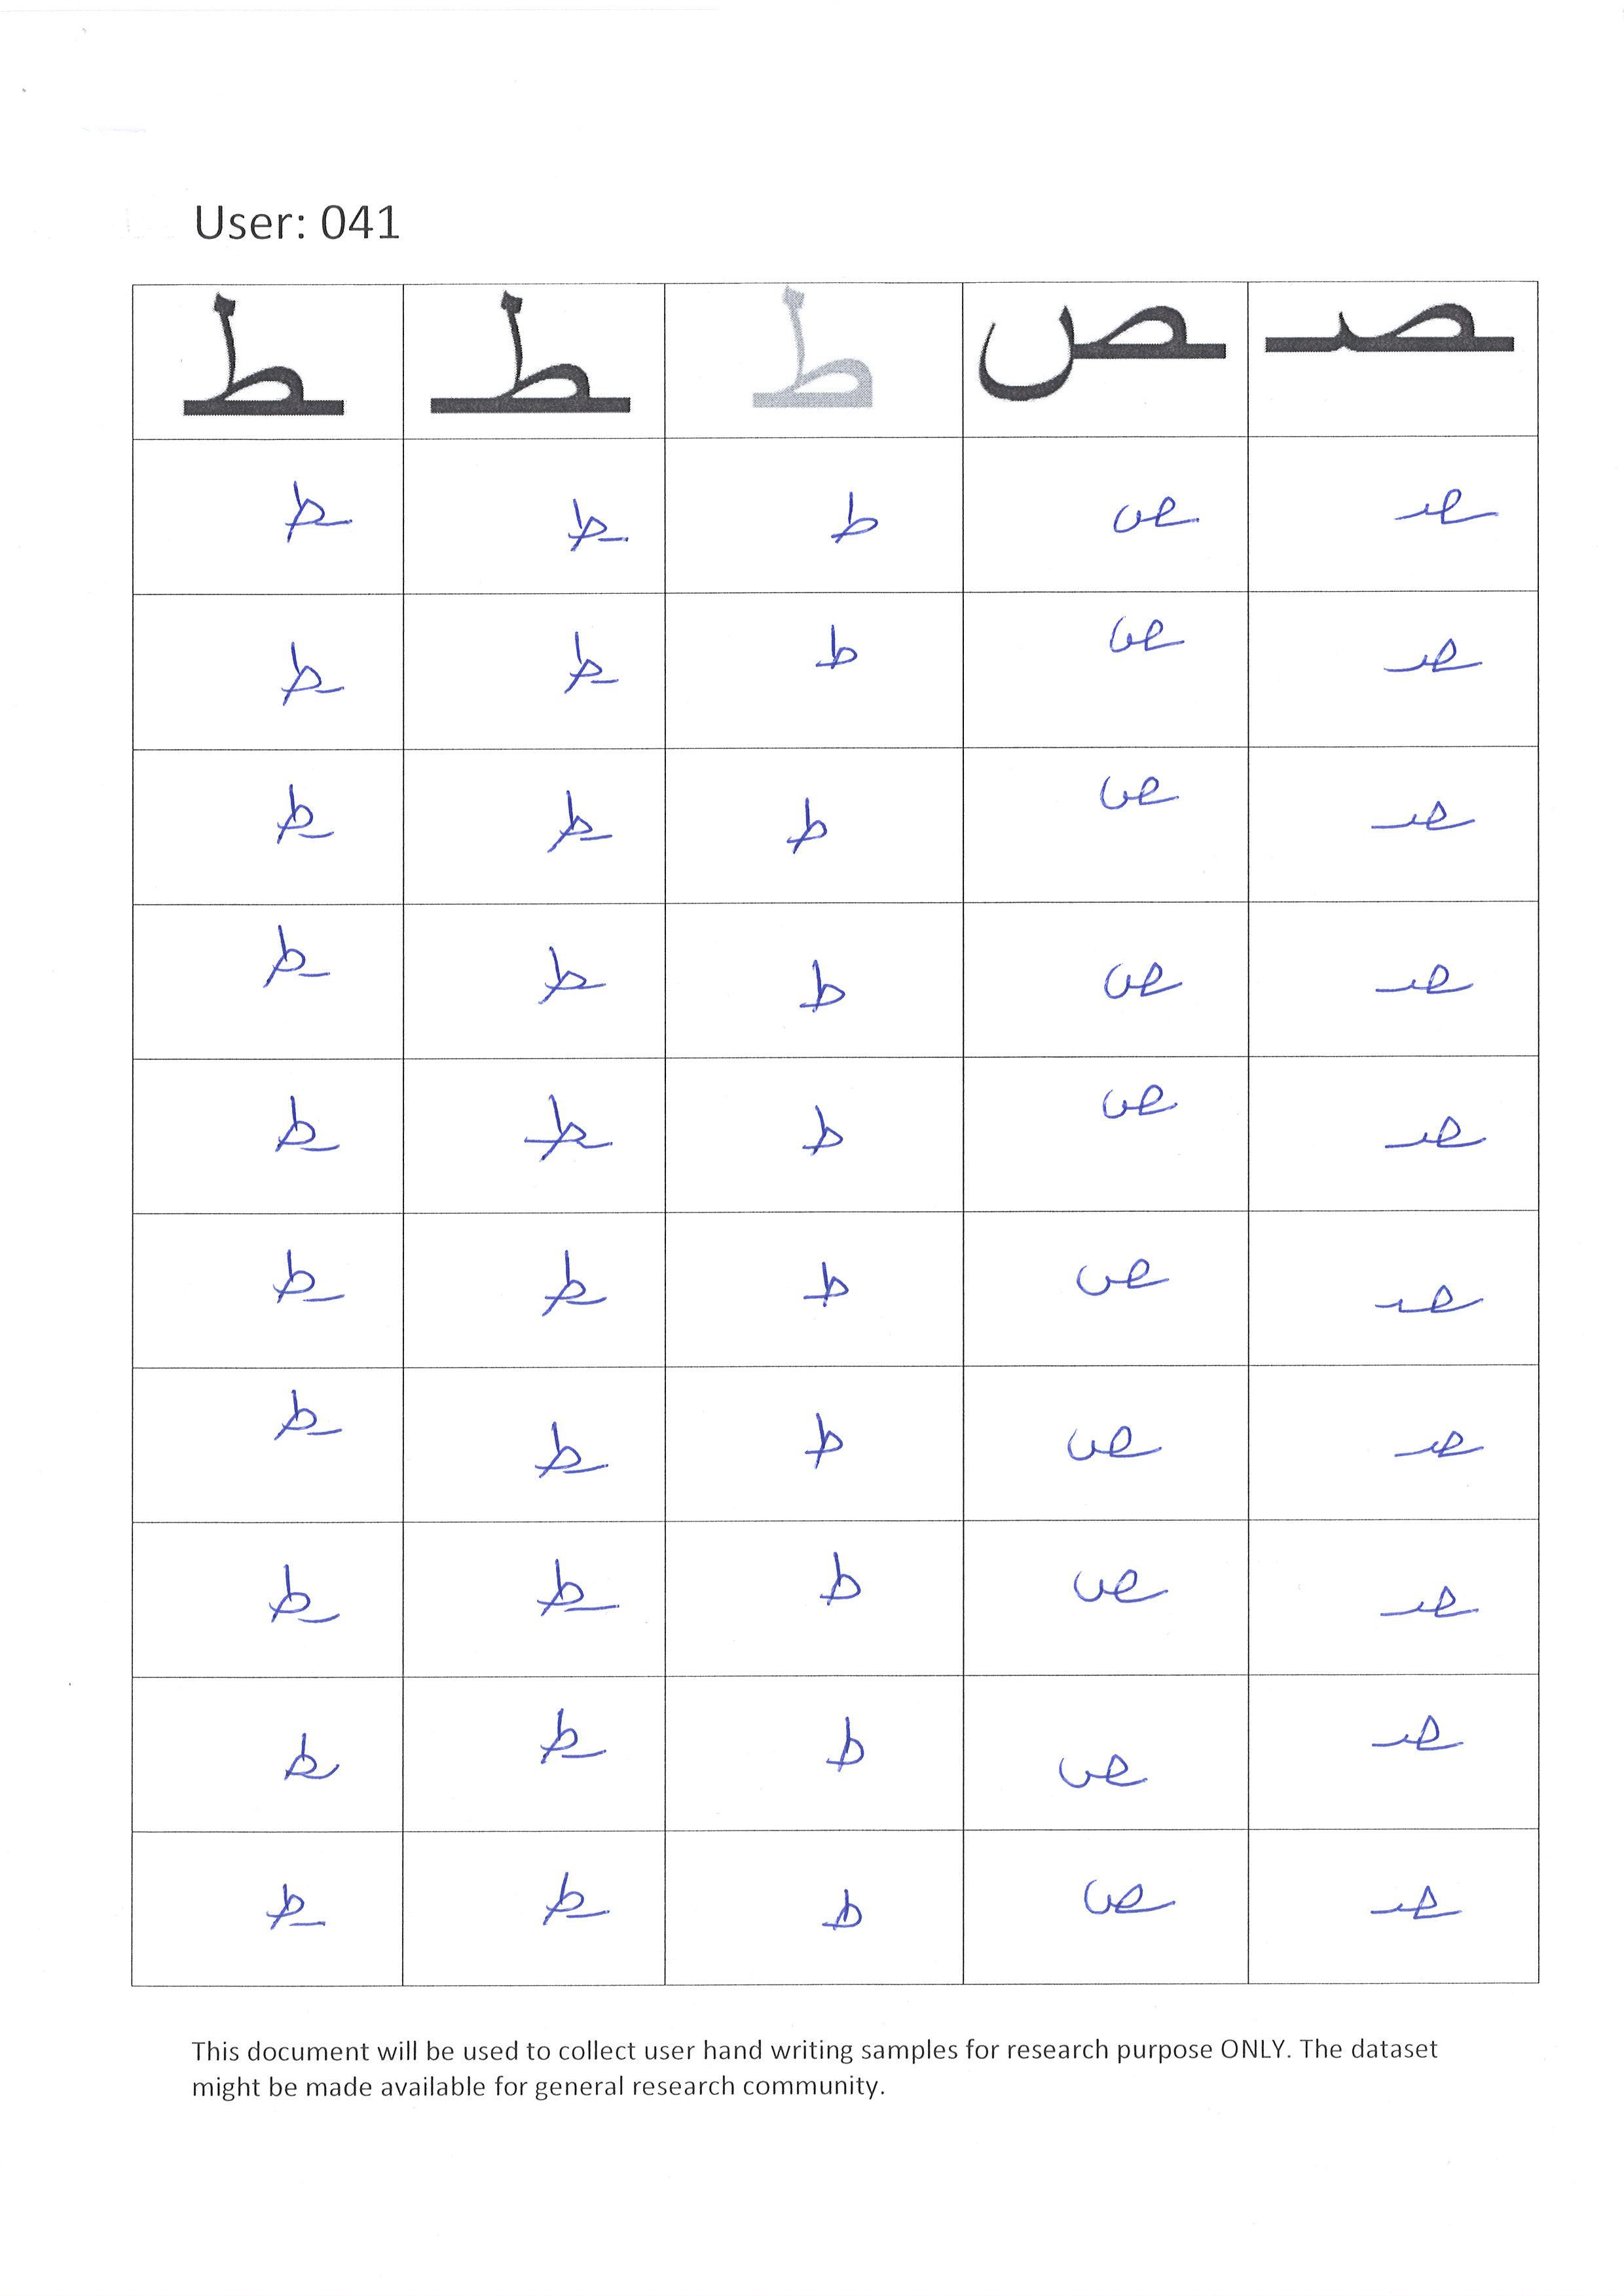 User: 041
ـط ـطـ ط ـص ـصـ
ـط ـطـ ط ـص ـصـ
ـط ـطـ ط ـص ـصـ
ـط ـطـ ط ـص ـصـ
ـط ـطـ ط ـص ـصـ
ـط ـطـ ط ـص ـصـ
ـط ـطـ ط ـص ـصـ
ـط ـطـ ط ـص ـصـ
ـط ـطـ ط ـص ـصـ
ـط ـطـ ط ـص ـصـ
ـط ـطـ ط ـص ـصـ
This document will be used to collect user hand writing samples for research purpose ONLY. The dataset
might be made available for general research community.